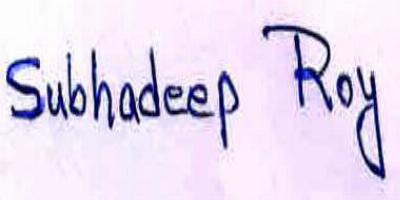 Subhadeep Roy